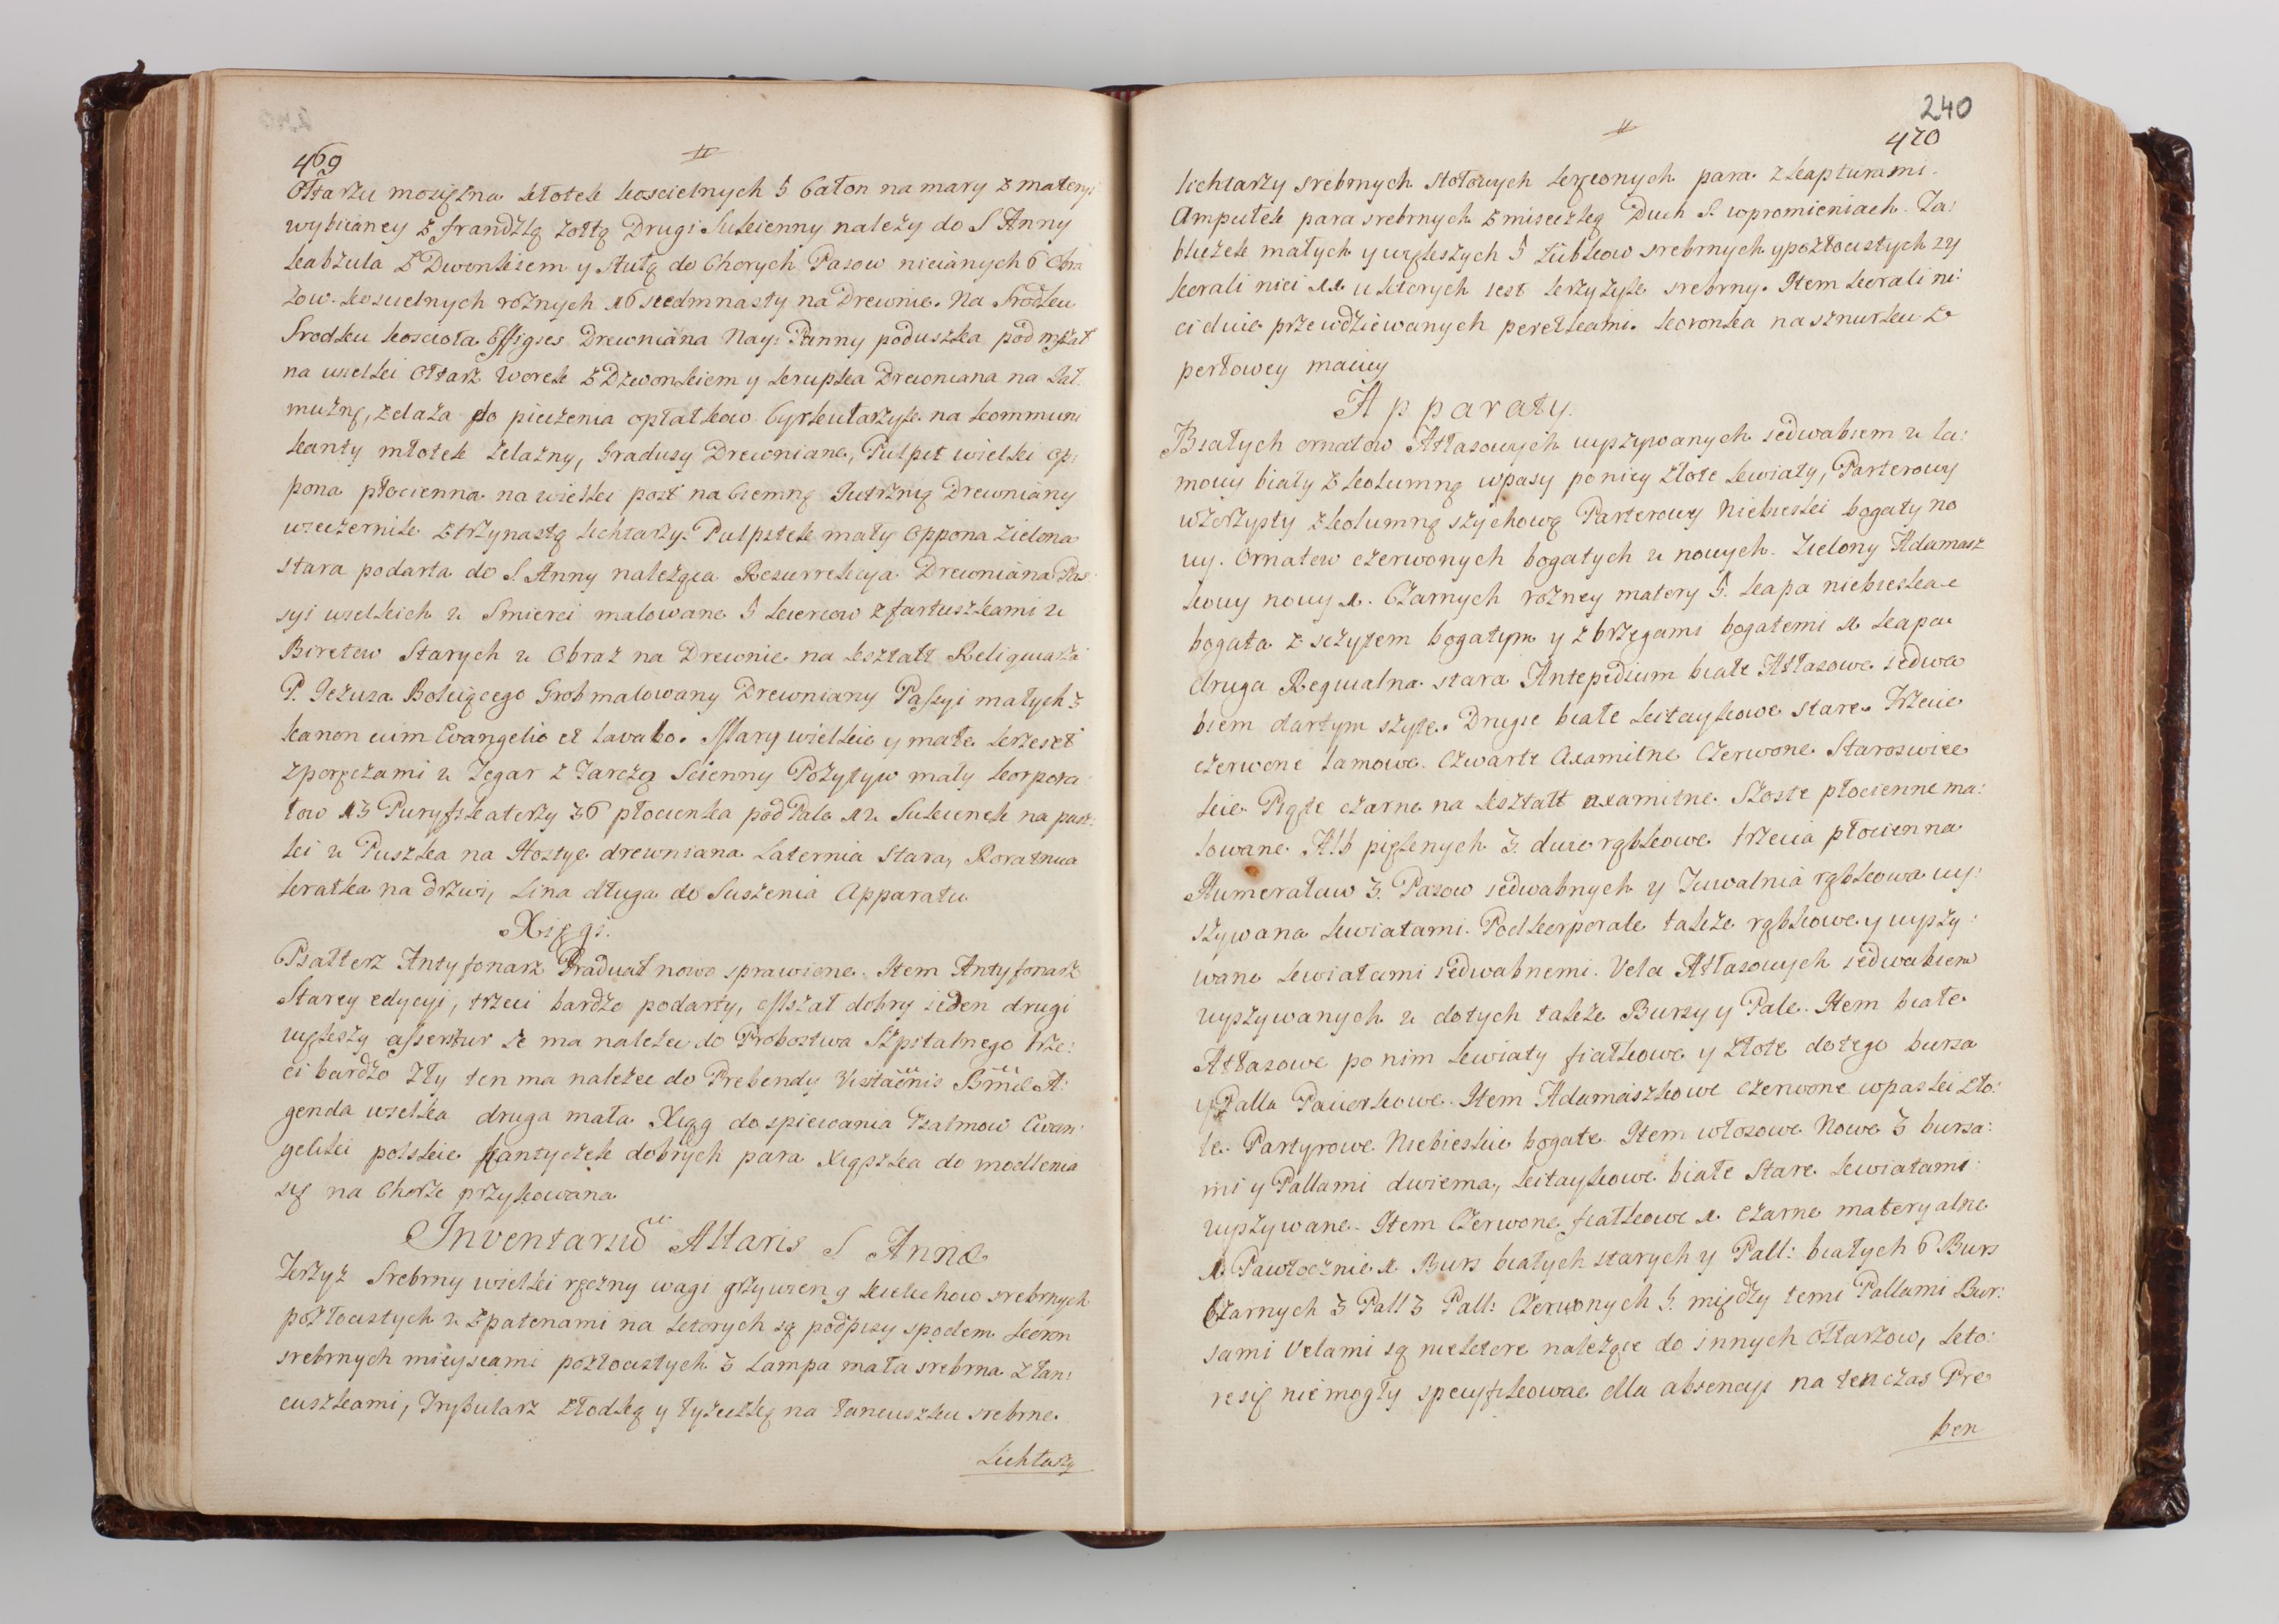 469
Ołtarzu mosiężna kłotek koscielnych 5 Całon na mary z materyi
wybiianey z frandzlą zołtą Drugi Sukienny należy do S Anny
kabzula z Dwonkiem y stułą do Chorych Pasow nicianych 6 Obra
zow koscielnych roznych 16 siedmnasty na Drewnie. Na Srodku
Srodku koscioła Effigies Drewniana Nay: Panny poduszka pod mszał
na wielki Ołtarz Worek z Dzwonkiem y krupka Drewniana na Jał
mużnę, żelaza do pieczenia opłatkow Cyrkularzyk na kommuni
kanty młotek żelazny, Gradusy Drewniane, Pulpit wielki op:
pona płocienna na wielki post na Ciemną Jutrznią Drewniany
wieczernik z trzynastą lichtarzy Pulpitek mały Oppona zielona
stara podarta do S. Anny należąca Resurrekcya Drewniana Pas
syi wielkich 2 Smierci malowane 5 kiercow z fartuszkami 2
Biretow Starych 2 Obraz na Drewnie na kształt Reliqwiarza
P. Jezusa Bolejącego Grob malowany Drewniany Passyi małych 3
kanon cum Evangelio et Lavabo. Mary wielkie y małe krzeseł
z poręczami 2 Zegar z Tarczą Scienny Pozytyw mały korpora
łow 13 Puryfikaterzy 36 płocienka pod Pale 12 Sukienek na pusz:
ki 2 Puszka na Hostye drewniana Laternia Stara, Roratnia
kratka na drzwi, Lina długa do Suszenia Apparatu
Xięgi.
Psałterz Antyfonarz Graduał nowo sprawione. Item Antyfonarz
Starey edycyi, trzeci bardzo podarty, Mszał dobry jeden drugi
większy asseritur że ma należec do Probostwa Szpitalnego trze:
ci bardzo zły ten ma należec do Prebendy Visitaönis Bmae A:
genda wielka druga mała Xiąg do spiewania Psalmow Ewan:
geliki polskie kantyczek dobrych para Xiąszka do modlenia
się na Chorze przykowana
Inventariu Altaris S Annæ
Krzyż Srebrny wielki ręczny wagi grzywien 9 kielichow srebrnych
pozłocistych 2 z patenami na ktorych są podpisy spodem koron
srebrnych mieyscami pozłocistych 3 Lampa mała srebrna z łan:
cuszkami, Trybularz z łodką y łyżeczką na łancuszku srebrne
Lichtarzy
240
470
lichtarzy srebrnych stołowych kręconych para z kapturami.
Ampułek para srebrnych z miseczką Duch S. w promieniach. Ta:
bliczek małych y większych 5 ząbkow srebrnych y pozłocistych 24
korali nici 11 u ktorych iest krzyżyk srebrny. Item korali ni:
ci dwie przewdziewanych perełkami. koronka na sznurku z
perłowey macicy
Apparaty.
Białych ornatow Atłasowych wyszywanych iedwabiem 2 la:
mowy biały z kolumną w pasy po niey złote kwiaty, Parterowy
wzorzysty z kolumną szychową Parterowy Niebieski bogaty no
wy. Ornatow czerwonych bogatych 2 nowych. Zielony Adamasz
kowy nowy 1. Czarnych rozney matery 5. kapa niebieska
bogata z szczytem bogatym y z brzegami bogatemi 1 kapa
druga Reqwialna stara Antepedium białe Atłasowe iedwa
biem dartym szyte. Drugie białe kitaykowe stare. Trzecie
czerwone Lamowe. Czwarte Axamitne Czerwone Staroswiec
kie Piąte czarne na kształt axamitne. Szoste płocienne ma:
lowane. Alb pięknych 3. dwie rąbkowe trzecia płocienna
Humerałow 3. Pasow iedwabnych y Tuwalnia rąbkowa wy:
szywana kwiatami. Podkorporale także rąbkowe y wyszy:
wane kwiatami iedwabnemi. Vela Atłasowych iedwabiem
wyszywanych 2 do tych także Bursy y Pale. Item białe
Atłasowe po nim kwiaty fiałkowe y złote do tego bursa
y Palla Pawiorkowe. Item Adamaszkowe czerwone w paski zło:
te. Partyrowe Niebieskie bogate. Item włosowe Nowe 3 bursa:
mi y Pallami dwiema, kitaykowe białe Stare kwiatami
wyszywane. Item Czerwone fiałkowe 1. czarne materyalne
1. Pawłocznie 1. Burs białych starych y Pall: białych 6 Burs
Czarnych 3 Pall 3 Pall: Czerwonych 5. między temi Pallami Bur:
sami Velami są niektore należące do innych Ołtarzow, kto:
re się nie mogły specyfikowac dla absencyi na ten czas Pre
ben